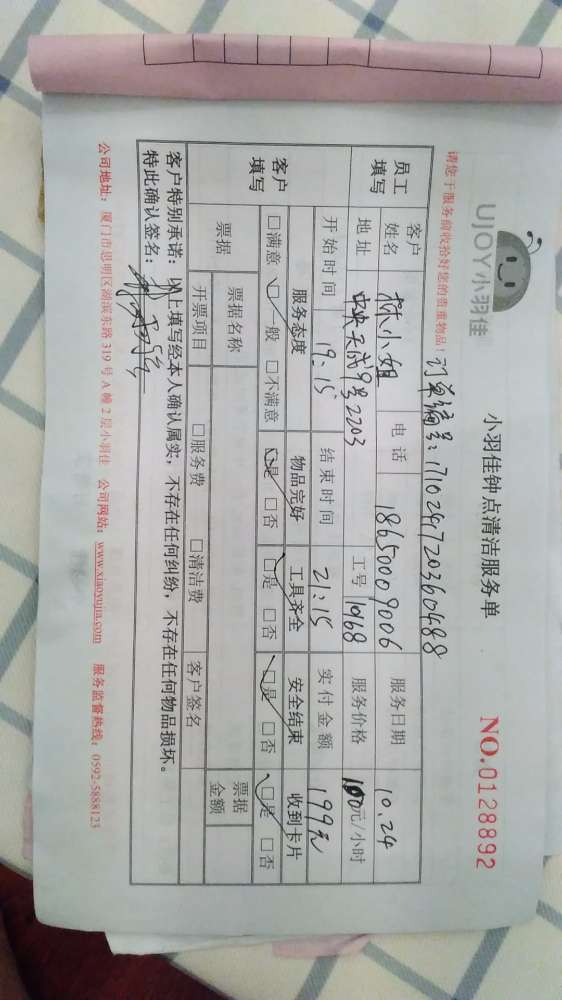 UJOY小羽佳
小羽佳钟点清洁服务单
NO.0128892
请您于服务前收拾好您的贵重物品!
订单编号:171024720360488
员工填写
客户姓名 林小姐 电话 18650009006 服务日期 10.24
地址 中央天成9号2203 工号 1068 服务价格 100元/小时
开始时间 19:15 结束时间 21:15 实付金额 199元
客户填写
服务态度 物品完好 工具齐全 安全结束 收到卡片
□满意 □一般 □不满意 □是 □否 □是 □否 □是 □否 □是 □否
票据 票据名称 票据金额
开票项目 □服务费 □清洁费 客户签名
客户特别承诺:以上填写经本人确认属实,不存在任何纠纷,不存在任何物品损坏。
特此确认签名:
公司地址:厦门市思明区湖滨东路319号A幢2层小羽佳 公司网站:www.xiaoyujia.com 服务监督热线:0592-5888123